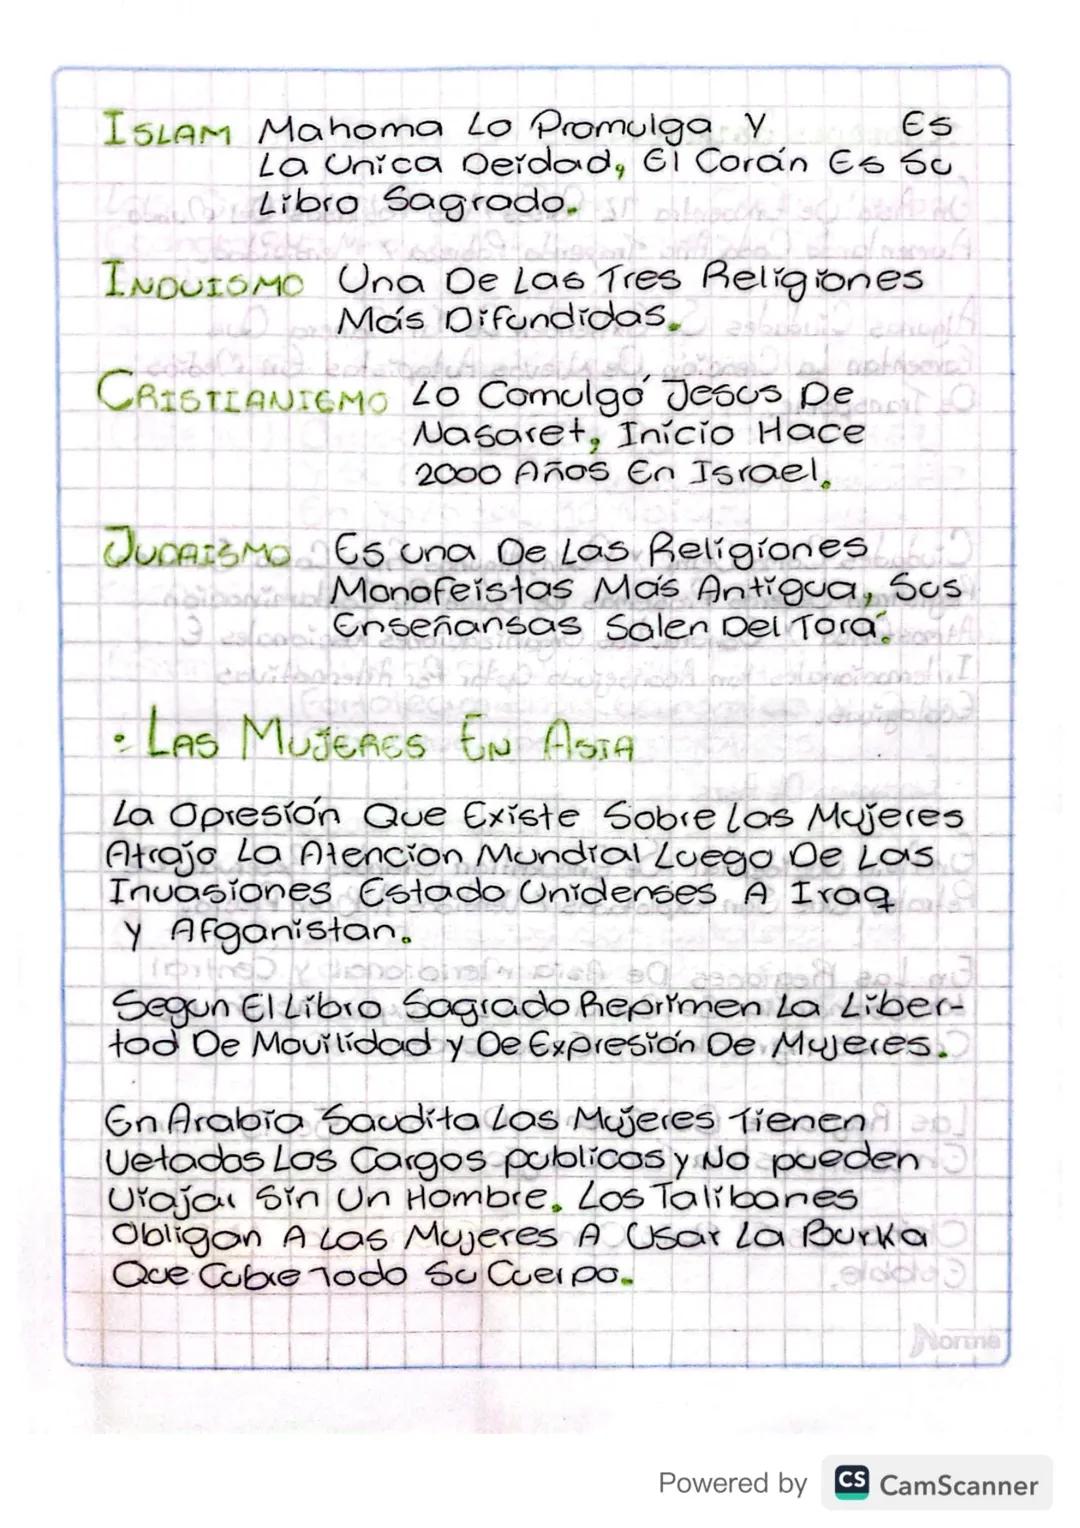 ISLAM Mahoma Lo Promulga Y Es
La Unica Deidad, El Corán Es Su
Libro Sagrado.
INDUISMO Una De Las Tres Religiones
Más Difundidas.
CRISTIANISMO Lo Comulgó Jesus De
Nasaret, Inicio Hace
2000 Años En Israel.
JUDAISMO Es una De Las Religiones
Monofeistas Más Antigua, Sus
Enseñansas Salen Del Torá.
• LAS MUJERES EN ASIA
La Opresión Que Existe Sobre Las Mujeres
Atrajo La Atencion Mundial Luego De Las
Invasiones Estado Unidenses A Iraq
y Afganistan.
Segun El Libro Sagrado Reprimen La Liber-
tad De Movilidad y De Expresión De Mujeres.
En Arabia Saudita Las Mujeres Tienen
Vetados Los Cargos publicos y No pueden
Viajar Sin Un Hombre. Los Talibanes
Obligan A Las Mujeres A Usar La Burka
Que Cubre Todo Su Cuerpo.
Norma
Powered by CS CamScanner